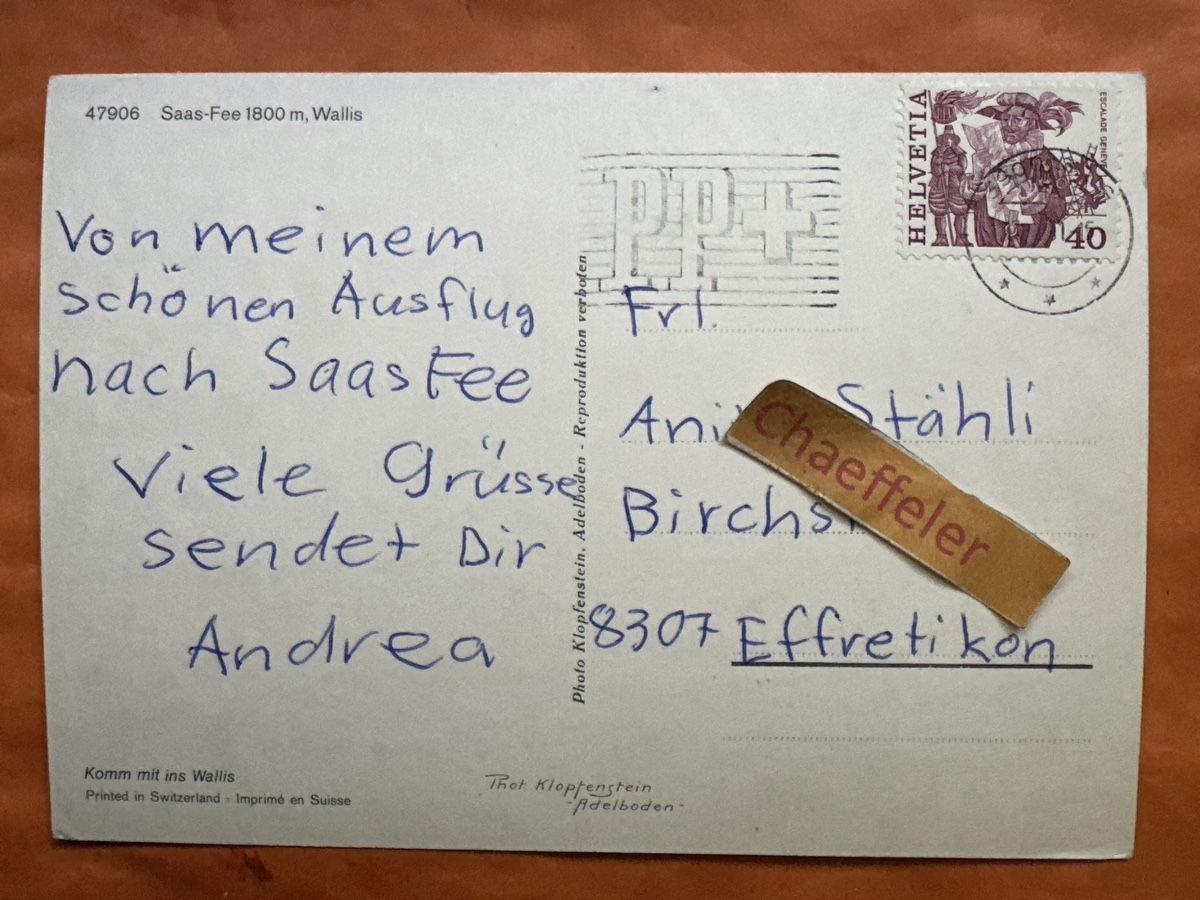 47906 Saas-Fee 1800 m, Wallis
HELVETIA
ESCALADE GENÈVE
40
PP+
Von meinem
schönen Ausflug
nach SaasFee
Viele Grüsse
sendet Dir
Andrea
Photo Klopfenstein, Adelboden - Reproduktion verboten
Frl.
Stähli
Chaeffeler
8307 Effretikon
Komm mit ins Wallis
Printed in Switzerland - Imprimé en Suisse
Phot. Klopfenstein
-Adelboden-